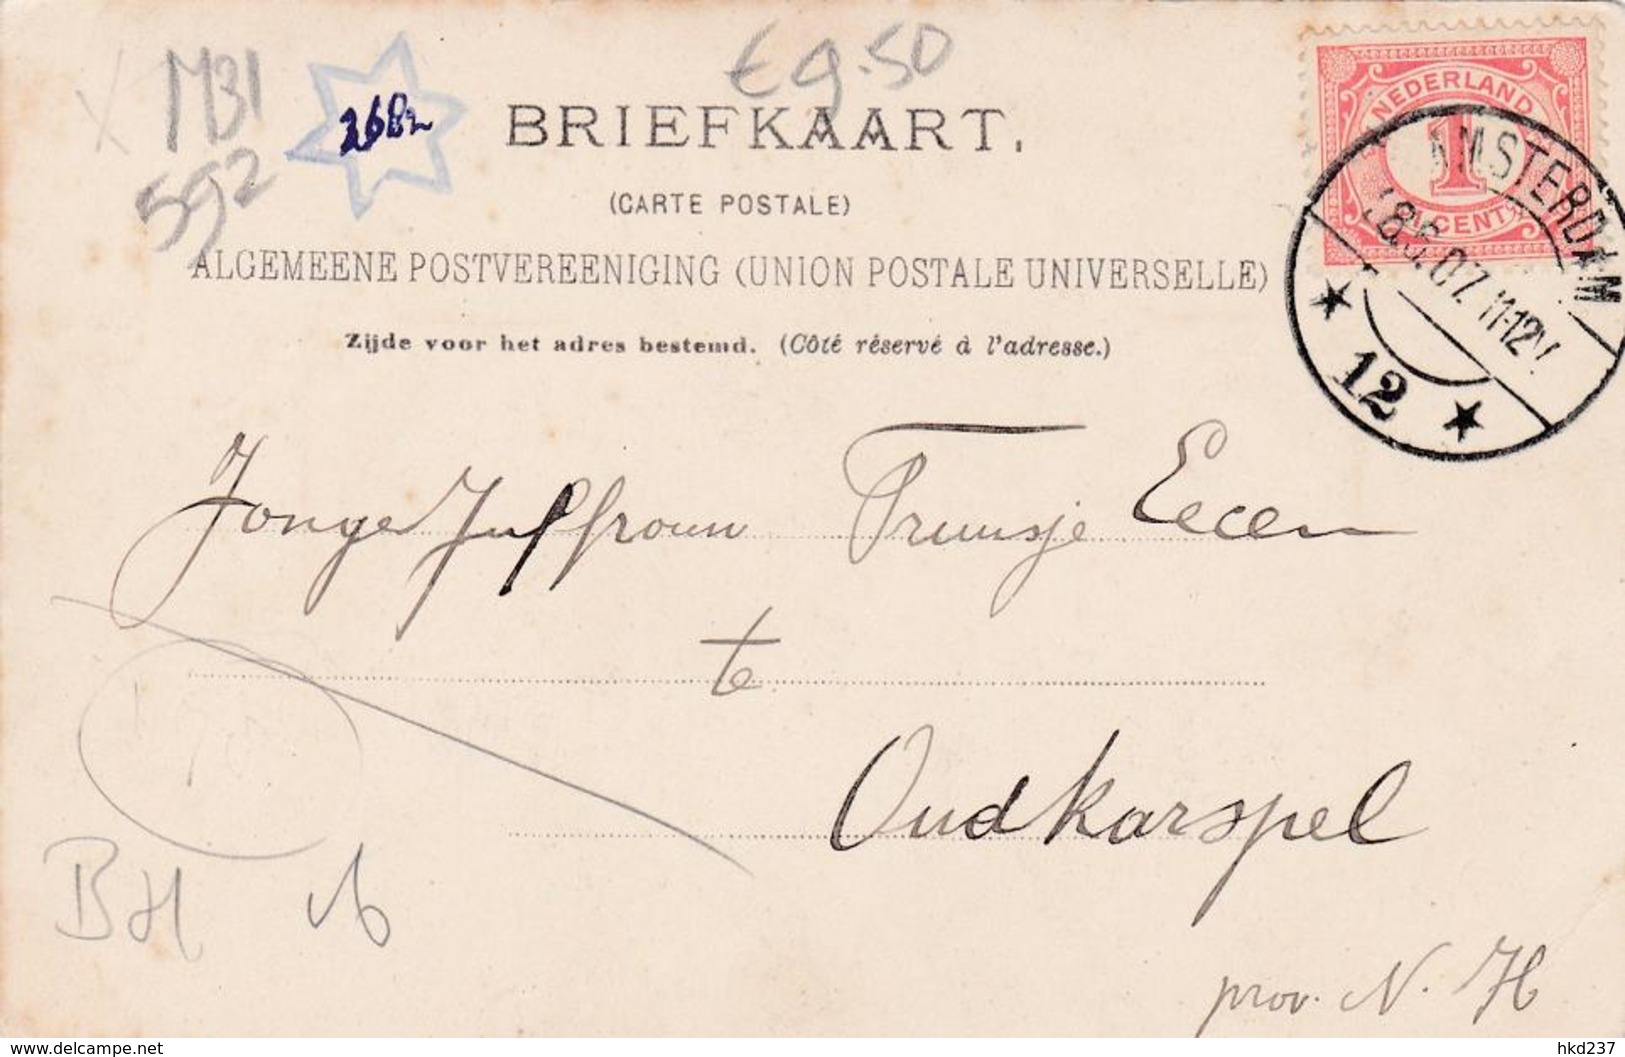 € 9.50
X M31
592
268
BRIEFKAART.
(CARTE POSTALE)
ALGEMEENE POSTVEREENIGING (UNION POSTALE UNIVERSELLE)
Zijde voor het adres bestemd. (Côté réservé à l'adresse.)
NEDERLAND
1
CENT
AMSTERDAM
8.6.07. 11-12V.
★ 12 ★
Jonge Juffrouw Truusje Eecen
te
Oudkarspel
prov. N. H
BH
http://www.delcampe.net
hkd237